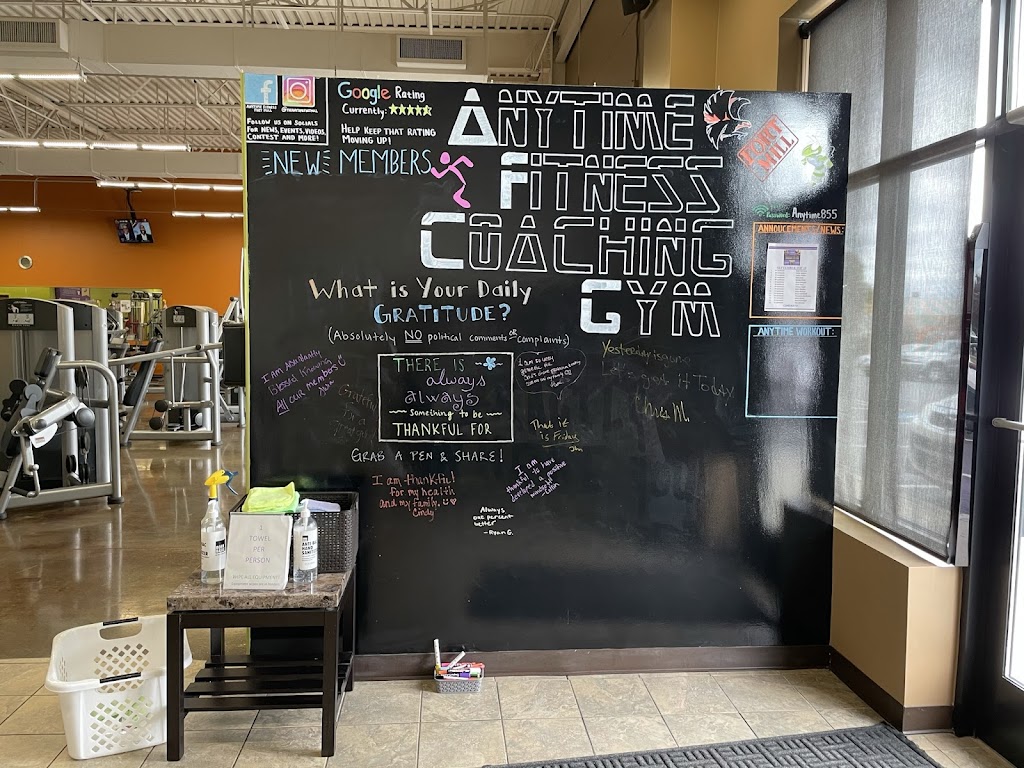 ANYTIME FITNESS
FORT MILL
FOLLOW US ON SOCIALS
FOR NEWS, EVENTS, VIDEOS,
CONTEST AND MORE!
Google Rating
Currently:
HELP KEEP THAT RATING
MOVING UP!
NEW MEMBERS
ANYTIME
FITNESS
COACHING
GYM
FORT
MILL
Password: Anytime855
ANNOUCEMENTS/NEWS:
ANYTIME WORKOUT:
What is Your Daily
GRATITUDE?
(Absolutely NO political comments or complaints)
THERE IS
always
always
Something to be
THANKFUL FOR
GRAB A PEN & SHARE!
I am Abundantly
Blessed Knowing
All our members
Yesterday is gone
Let's get it Today
Chris M.
That it
is Friday
I am thankful!
for my health
and my family.
Cindy
I am
thankful to have
developed a positive
mindset
Always
one percent
better
- Ryan G.
1
TOWEL
PER
PERSON